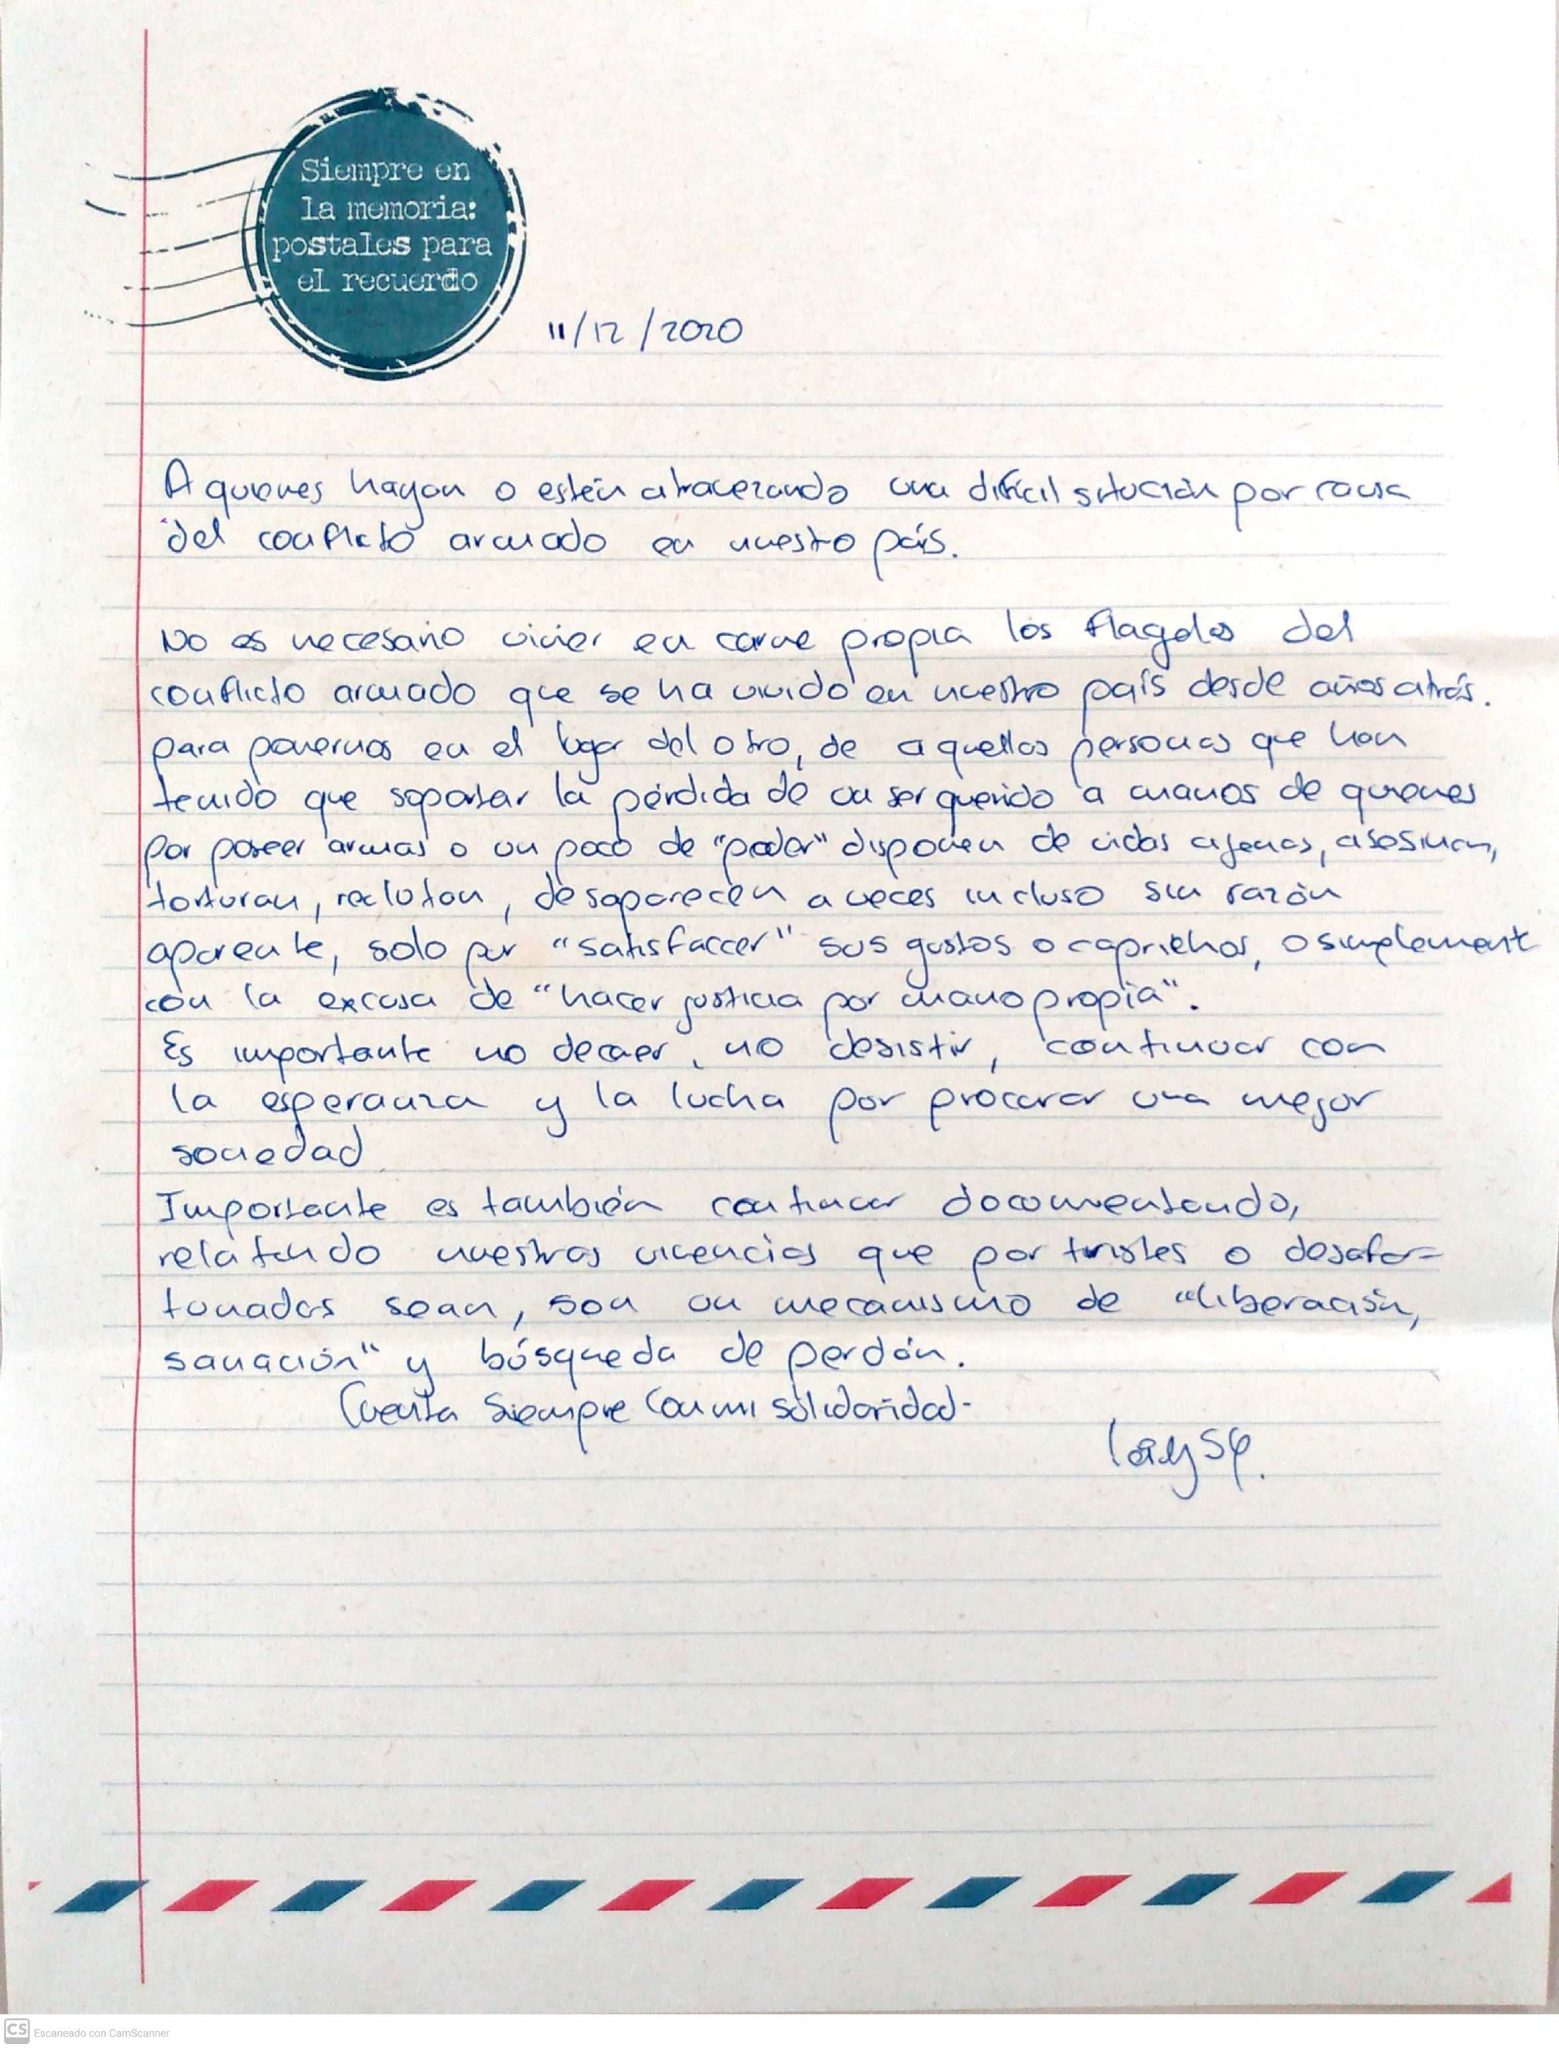 Siempre en
la memoria:
postales para
el recuerdo
11/12/2020
A quienes hayan o estén atravezando una difícil situción por causa
del conflicto armado en nuestro país.
No es necesario vivier en carne propia los flagelos del
conflicto armado que se ha vivido en nuestro país desde años atrás.
para ponernos en el lugar del otro, de aquellas personas que han
tenido que soportar la pérdida de un ser querido a manos de quienes
por poseer armas o un poco de "poder" disponen de vidas ajenas, asesinan,
torturan, reclutan, desaparecen a veces incluso sin razón
aparente, solo por "satisfaccer" sus gustos o caprichos, o simplement
con la excusa de "hacer justicia por mano propia".
Es importante no decaer, no desistir, continuar con
la esperanza y la lucha por procurar una mejor
sociedad
Importante es también continuar documentando,
relatando nuestras vivencias que por tristes o desafor-
tunadas sean, son un mecanismo de "liberación,
sanación" y búsqueda de perdón.
Cuenta Siempre con mi solidaridad-
CS Escaneado con CamScanner